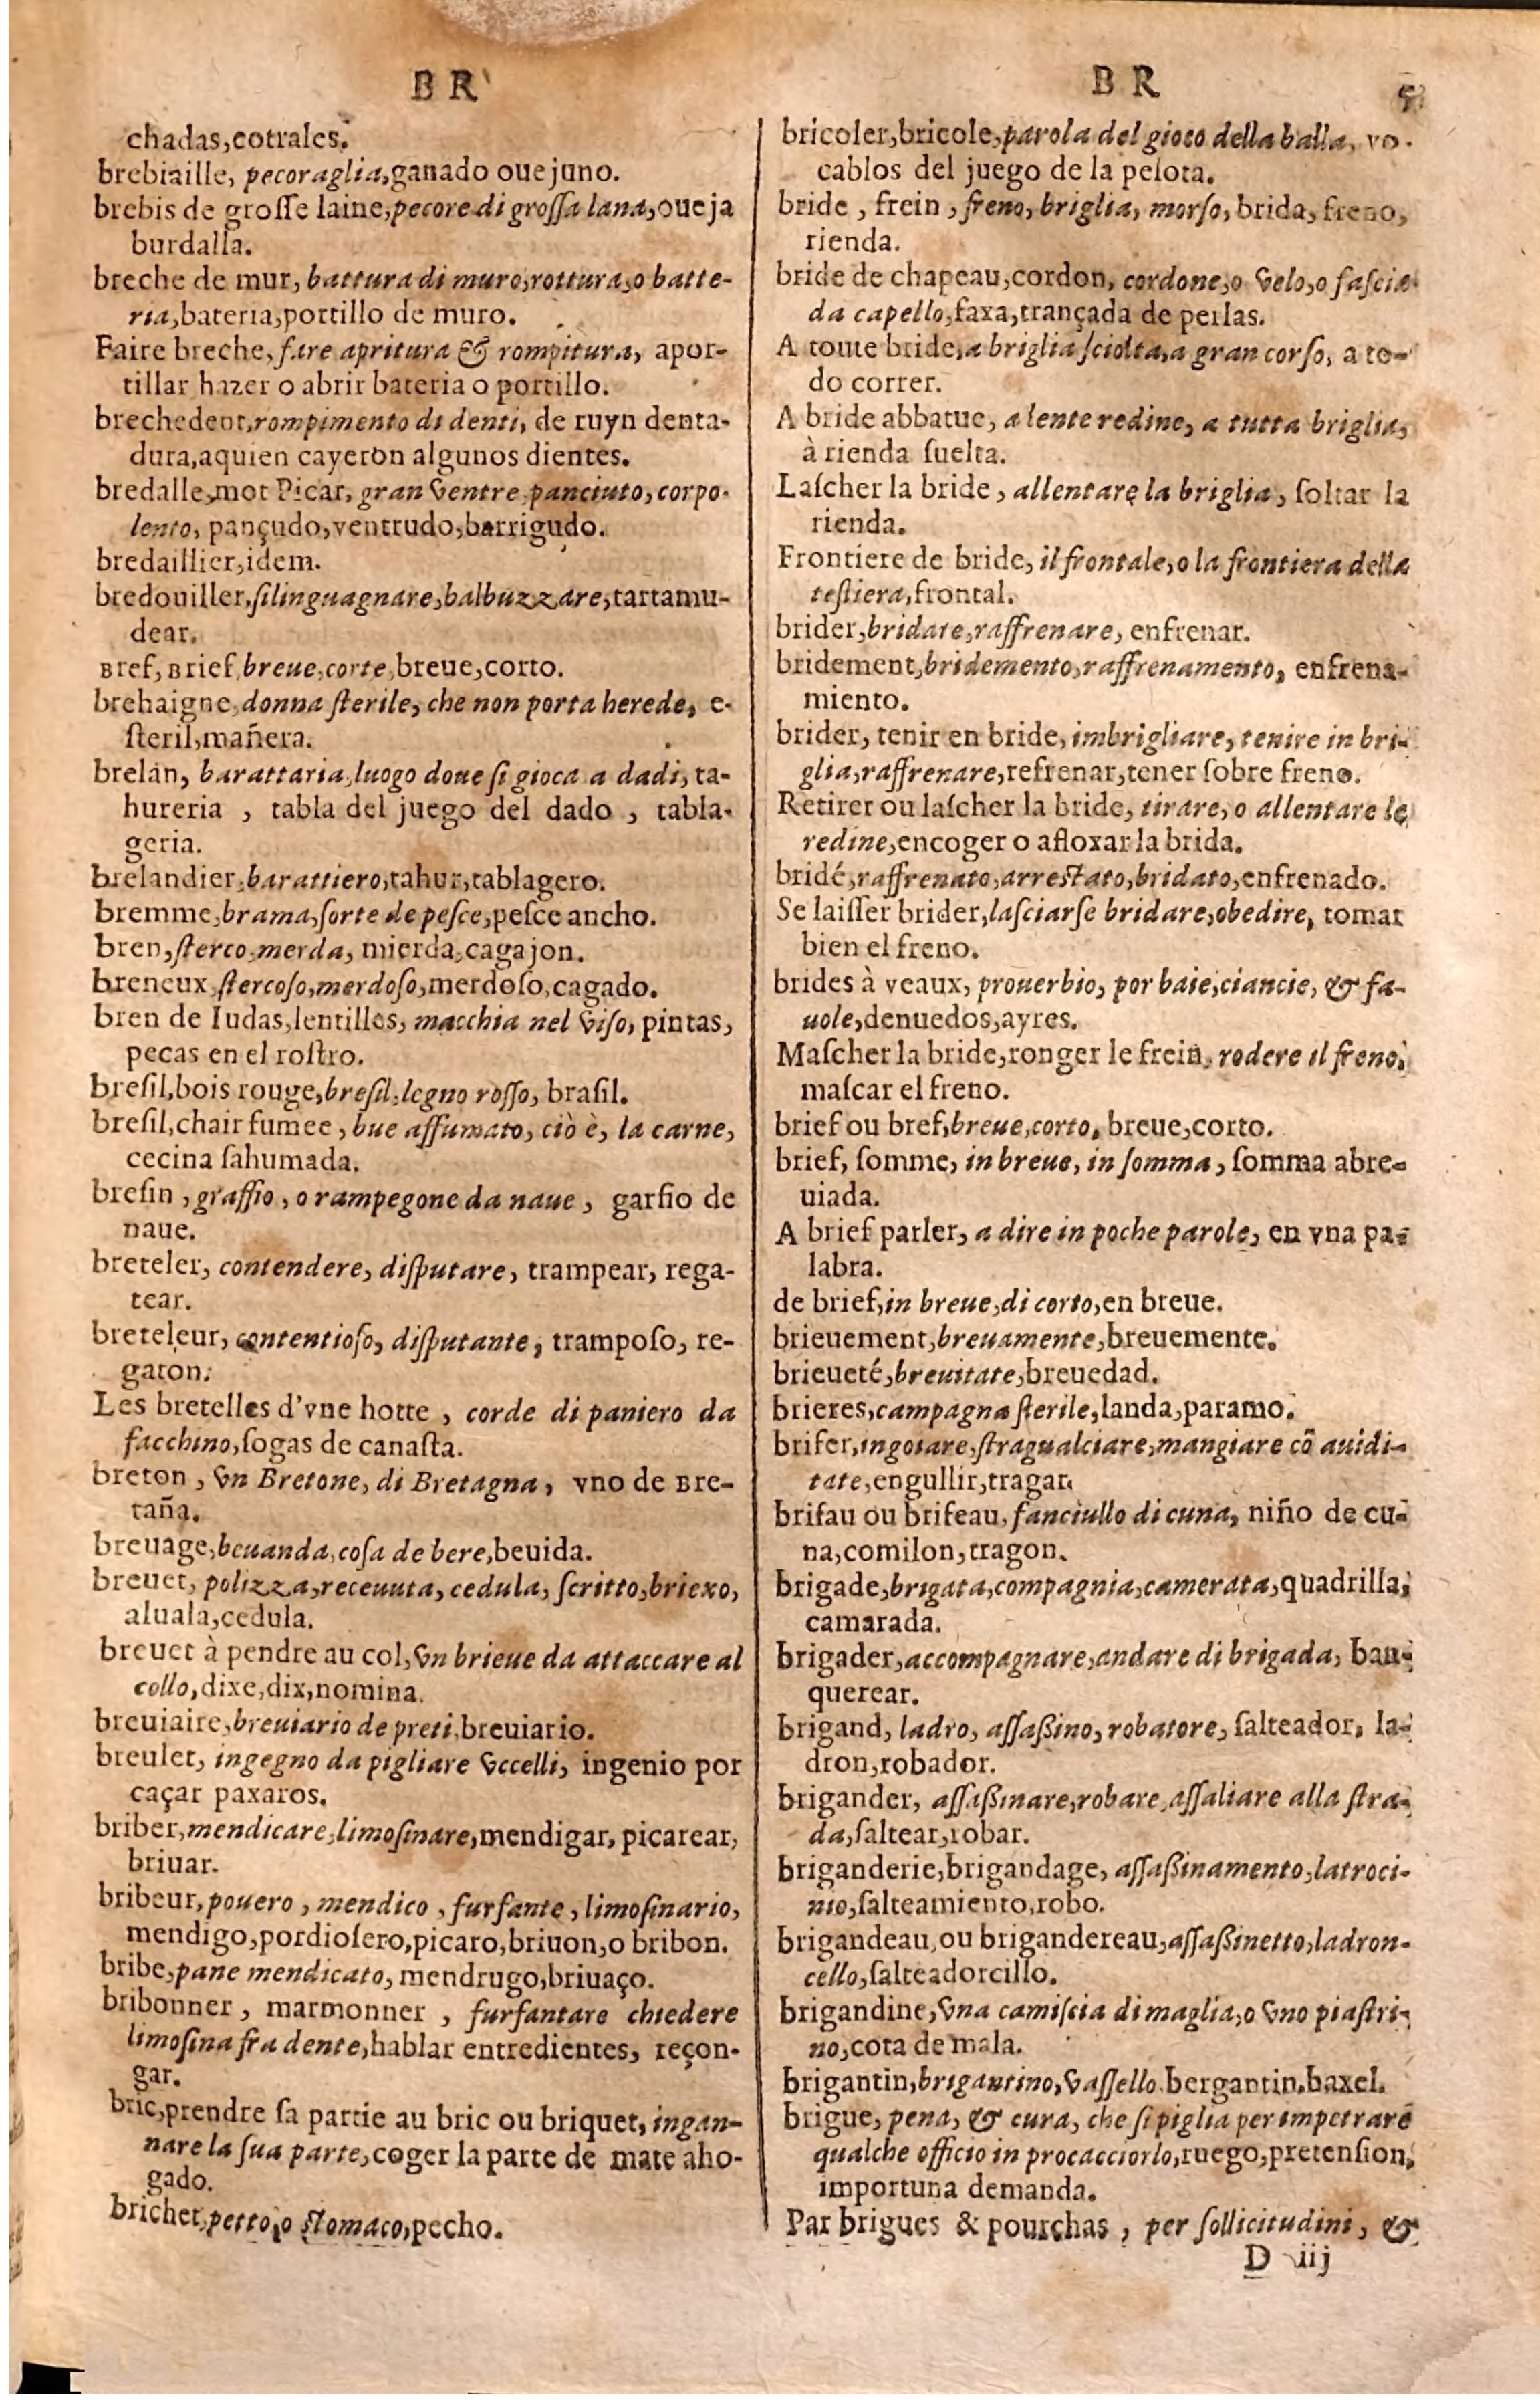 BR
chadas,cotrales.
brebiaille, pecoraglia,ganado ouejuno.
brebis de groſſe laine,pecore di groſſa lana,oueja
burdalla.
breche de mur, battura di muro,rottura,o batte-
ria,bateria,portillo de muro.
Faire breche, fare apritura & rompitura, apor-
tillar hazer o abrir bateria o portillo.
brechedent,rompimento di denti, de ruyn denta-
dura,aquien cayeron algunos dientes.
bredalle,mot Picar, gran ventre panciuto, corpo-
lento, pançudo,ventrudo,barrigudo.
bredaillier,idem.
bredouiller,ſilinguagnare,balbuzzare,tartamu-
dear.
Bref, Brief,breue,corte,breue,corto.
brehaigne,donna ſterile, che non porta herede, e-
ſteril,mañera.
brelan, barattaria,luogo doue ſi gioca a dadi, ta-
hureria , tabla del juego del dado , tabla-
geria.
brelandier,barattiero,tahur,tablagero.
bremme,brama,ſorte de peſce,peſce ancho.
bren,ſterco,merda, mierda,cagajon.
breneux,ſtercoſo,merdoſo,merdoſo,cagado.
bren de Iudas,lentilles, macchia nel viſo, pintas,
pecas en el roſtro.
breſil,bois rouge,breſil,legno roſſo, braſil.
breſil,chair fumee , bue affumato, ciò è, la carne,
cecina ſahumada.
breſin , graffio , o rampegone da naue , garfio de
naue.
breteler, contendere, diſputare, trampear, rega-
tear.
breteleur, contentioſo, diſputante, trampoſo, re-
gaton.
Les bretelles d'vne hotte , corde di paniero da
facchino,ſogas de canaſta.
breton , vn Bretone, di Bretagna, vno de Bre-
taña.
breuage,beuanda,coſa de bere,beuida.
breuet, polizza,receuuta, cedula, ſcritto,briexo,
aluala,cedula.
breuet à pendre au col,vn brieue da attaccare al
collo,dixe,dix,nomina.
breuiaire,breuiario de preti,breuiario.
breulet, ingegno da pigliare vccelli, ingenio por
caçar paxaros.
briber,mendicare,limoſinare,mendigar, picarear,
briuar.
bribeur,pouero , mendico , furfante , limoſinario,
mendigo,pordioſero,picaro,briuon,o bribon.
bribe,pane mendicato, mendrugo,briuaço.
bribonner , marmonner , furfantare chiedere
limoſina fra dente,hablar entredientes, reçon-
gar.
bric,prendre ſa partie au bric ou briquet, ingan-
nare la ſua parte,coger la parte de mate aho-
gado.
brichet,petto,o ſtomaco,pecho.
BR
bricoler,bricole,parola del gioco della balla, vo-
cablos del juego de la pelota.
bride , frein , freno, briglia, morſo, brida, freno,
rienda.
bride de chapeau,cordon, cordone,o velo,o faſcia
da capello,faxa,trançada de perlas.
A toute bride,a briglia ſciolta,a gran corſo, a to-
do correr.
A bride abbatue, a lente redine, a tutta briglia,
à rienda ſuelta.
Laſcher la bride , allentare la briglia , ſoltar la
rienda.
Frontiere de bride, il frontale,o la frontiera della
teſtiera,frontal.
brider,bridare,raffrenare, enfrenar.
bridement,bridemento,raffrenamento, enfrena-
miento.
brider, tenir en bride, imbrigliare, tenire in bri-
glia,raffrenare,refrenar,tener ſobre freno.
Retirer ou laſcher la bride, tirare, o allentare le
redine,encoger o afloxar la brida.
bridé,raffrenato,arreſtato,bridato,enfrenado.
Se laiſſer brider,laſciarſe bridare,obedire, tomar
bien el freno.
brides à veaux, prouerbio, por baie,ciancie, & fa-
uole,denuedos,ayres.
Maſcher la bride,ronger le frein, rodere il freno,
maſcar el freno.
brief ou bref,breue,corto, breue,corto.
brief, ſomme, in breue, in ſomma , ſomma abre-
uiada.
A brief parler, a dire in poche parole, en vna pa-
labra.
de brief,in breue,di corto,en breue.
brieuement,breuamente,breuemente.
brieueté,breuitate,breuedad.
brieres,campagna ſterile,landa,paramo.
brifer,ingoiare,ſtragualciare,mangiare cō auidi-
tate,engullir,tragar.
brifau ou brifeau, fanciullo di cuna, niño de cu-
na,comilon,tragon.
brigade,brigata,compagnia,camerata,quadrilla,
camarada.
brigader,accompagnare,andare di brigada, ban-
querear.
brigand, ladro, aſſaßino, robatore, ſalteador, la-
dron,robador.
brigander, aſſaßinare,robare,aſſaliare alla ſtra-
da,ſaltear,robar.
briganderie,brigandage, aſſaßinamento,latroci-
nio,ſalteamiento,robo.
brigandeau,ou brigandereau,aſſaßinetto,ladron-
cello,ſalteadorcillo.
brigandine,vna camiſcia di maglia,o vno piaſtri-
no,cota de mala.
brigantin,brigantino,vaſſello.bergantin,baxel.
brigue, pena, & cura, che ſi piglia per impetrare
qualche officio in procacciorlo,ruego,pretenſion,
importuna demanda.
Par brigues & pourchas , per ſollicitudini , &
D iij